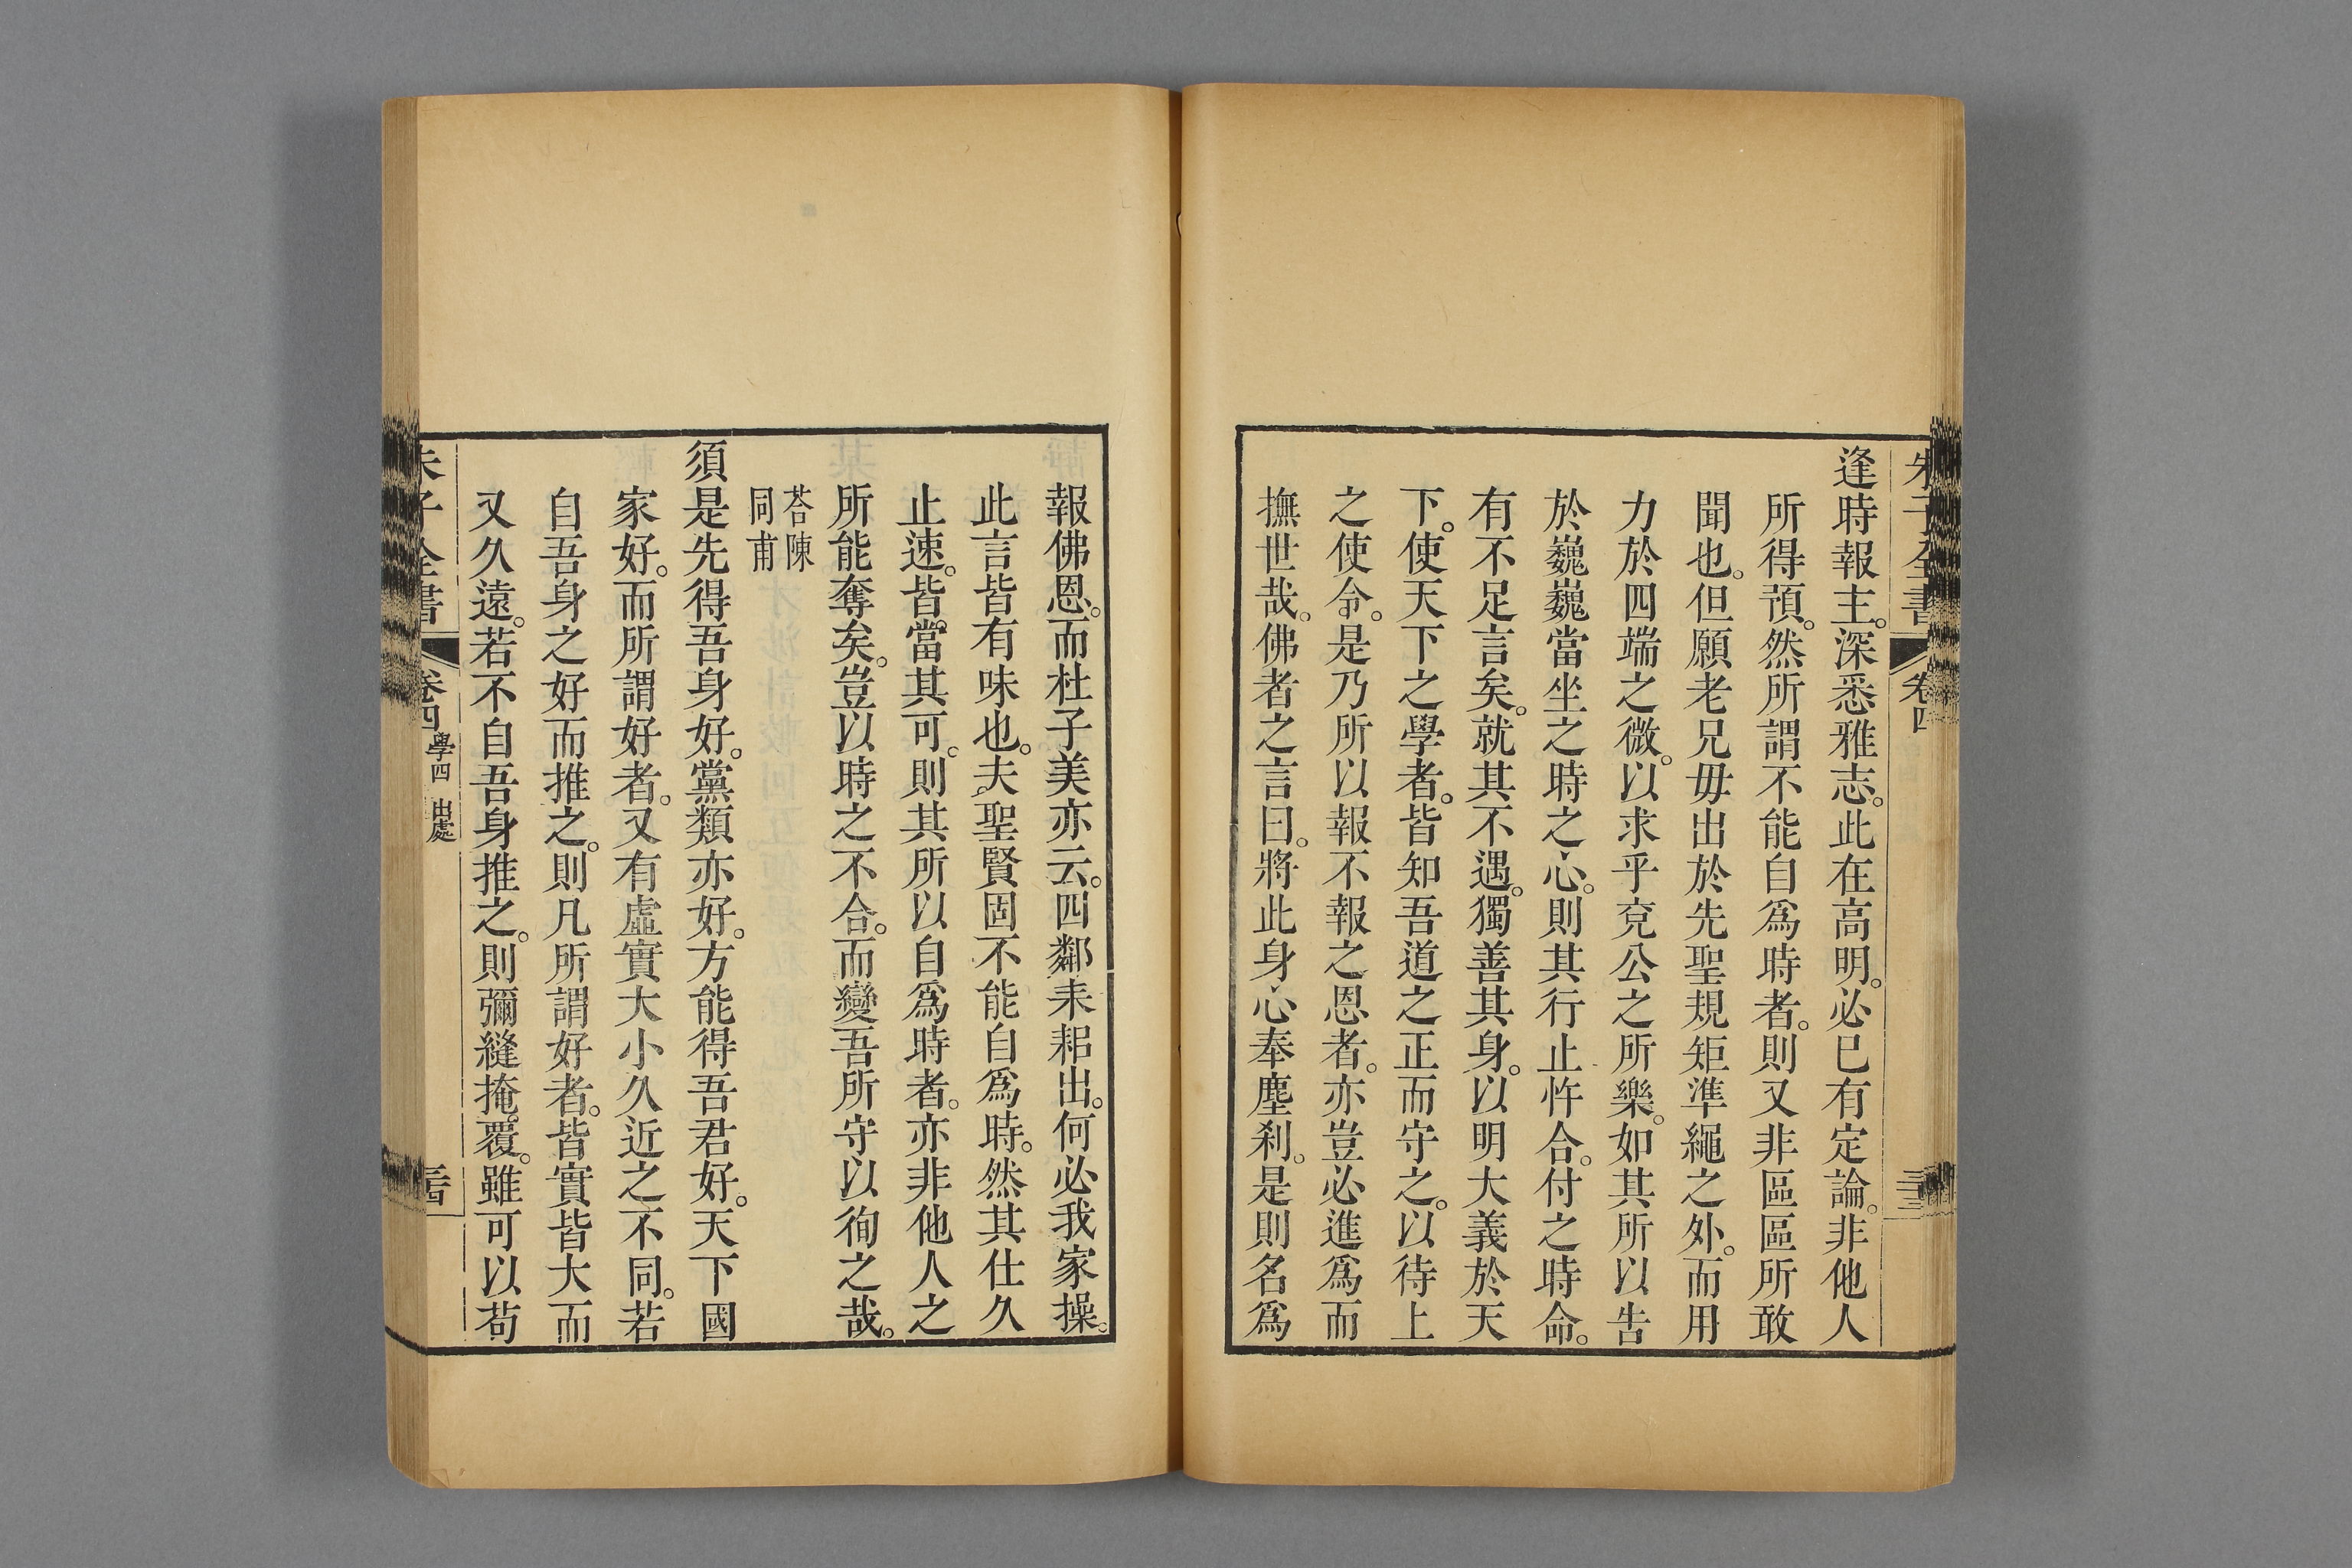 朱子全書 卷四
三十三
逢時報主。深悉雅志。此在高明。必已有定論。非他人
所得預。然所謂不能自爲時者。則又非區區所敢
聞也。但願老兄毋出於先聖規矩準繩之外。而用
力於四端之微。以求乎兗公之所樂。如其所以告
於巍巍當坐之時之心。則其行止忤合。付之時命。
有不足言矣。就其不遇。獨善其身。以明大義於天
下。使天下之學者。皆知吾道之正而守之。以待上
之使令。是乃所以報不報之恩者。亦豈必進爲而
撫世哉。佛者之言曰。將此身心奉塵刹。是則名爲
報佛恩。而杜子美亦云。四鄰耒耜出。何必我家操。
此言皆有味也。夫聖賢固不能自爲時。然其仕久
止速。皆當其可。則其所以自爲時者。亦非他人之
所能奪矣。豈以時之不合。而變吾所守以徇之哉。
荅陳
同甫
須是先得吾身好。黨類亦好。方能得吾君好。天下國
家好。而所謂好者。又有虛實大小久近之不同。若
自吾身之好而推之。則凡所謂好者。皆實皆大而
又久遠。若不自吾身推之。則彌縫掩覆。雖可以苟
朱子全書 卷四 學四 出處